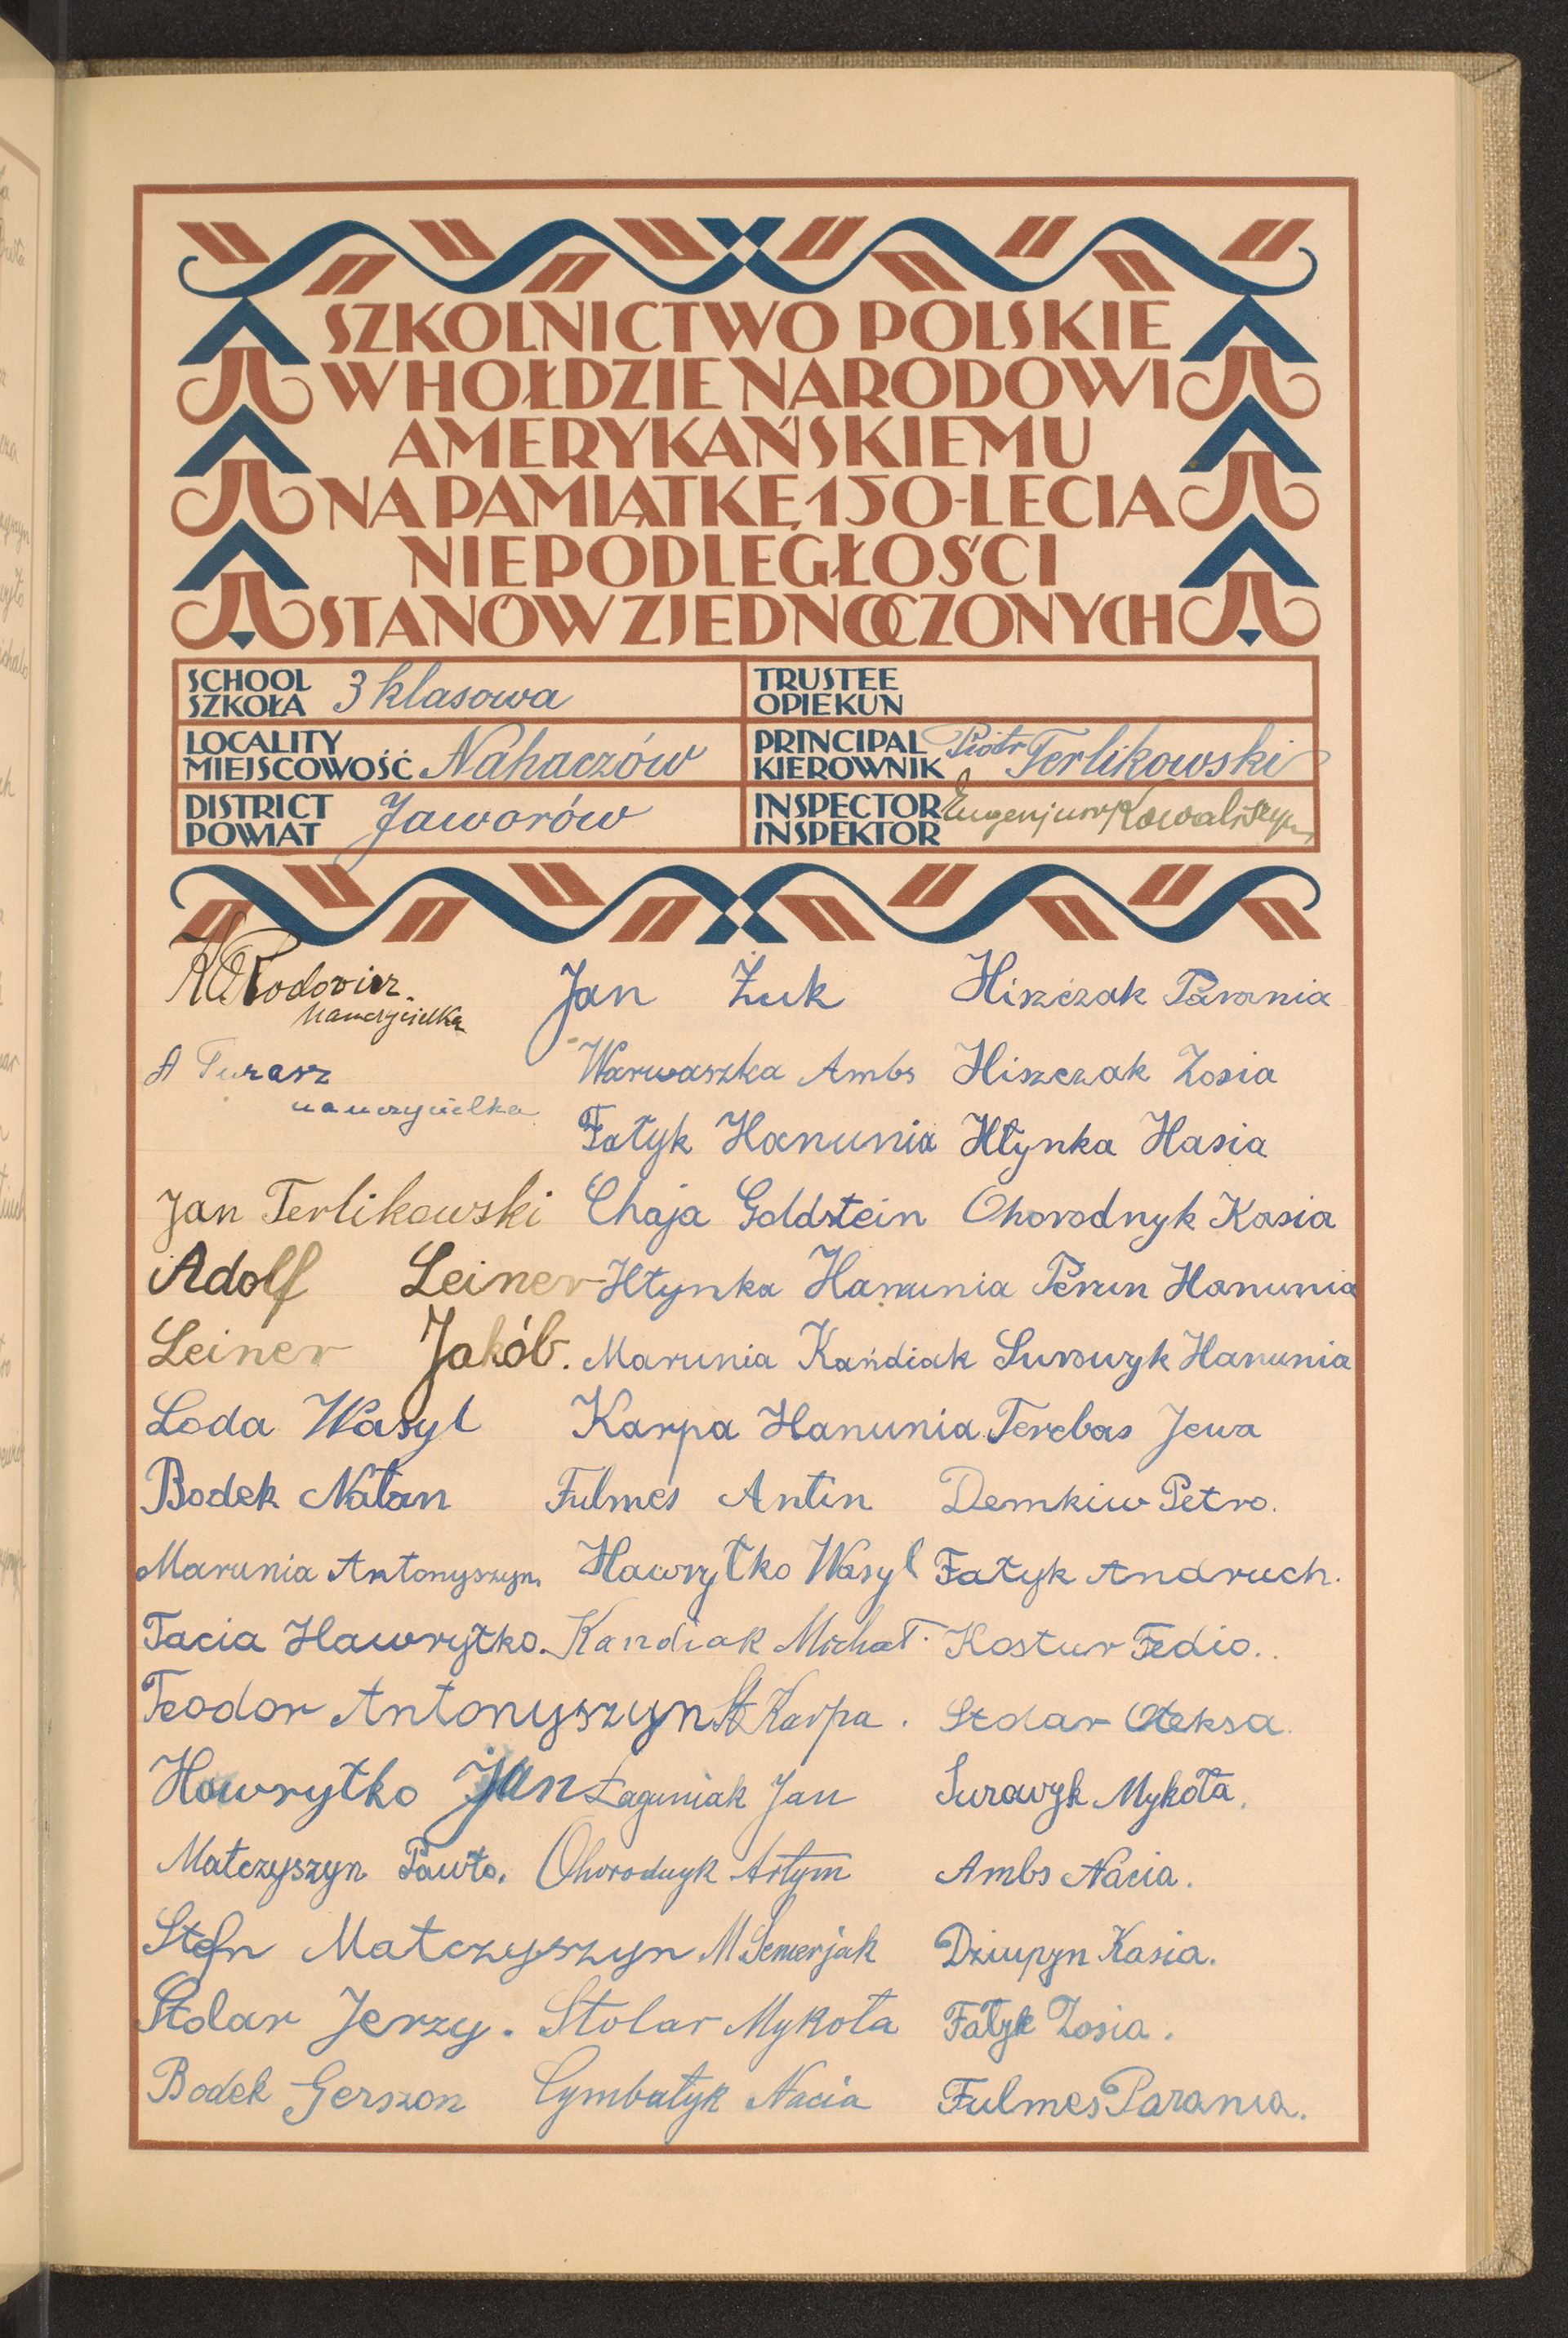 SZKOLNICTWO POLSKIE
W HOŁDZIE NARODOWI
AMERYKAŃSKIEMU
NA PAMIĄTKĘ 150-LECIA
NIEPODLEGŁOŚCI
STANÓW ZJEDNOCZONYCH
SCHOOL
SZKOŁA 3 klasowa
TRUSTEE
OPIEKUN
LOCALITY
MIEJSCOWOŚĆ Nahaczów
PRINCIPAL
KIEROWNIK Piotr Terlikowski
DISTRICT
POWIAT Jaworów
INSPECTOR
INSPEKTOR Eugenjusz
nauczycielka
A Turasz
nauczycielka
Jan Terlikowski
Adolf Leiner
Leiner Jakób.
Loda Wasyl
Bodek Natan
Marunia Antonyszyn.
Tacia Hawryłko.
Teodor Antonyszyn
Hawryłko Jan
Matczyszyn Pawło.
Stefn Matczyszyn
Stolar Jerzy.
Bodek Gerszon
Jan Żuk
Warwaszka Ambs
Fatyk Hanunia
Chaja Goldstein
Hłynka Hanunia
Marunia Kańdiak
Karpa Hanunia
Fulmes Antin
Hawryłko Wasyl
Kandiak Michał.
St Karpa.
Łaguniak Jan
Ohorodnyk Artym
M Semerjak
Stolar Mykoła
Cymbałyk Nacia
Hiszczak Parania
Hiszczak Zosia
Hłynka Hasia
Ohorodnyk Kasia
Perun Hanunia
Surowyk Hanunia
Terebas Jewa
Demkiw Petro.
Fatyk Andruch.
Kostur Fedio..
Stolar Ołeksa.
Surowyk Mykoła.
Ambs Nacia.
Dziupyn Kasia.
Fatyk Zosia.
Fulmes Parania.